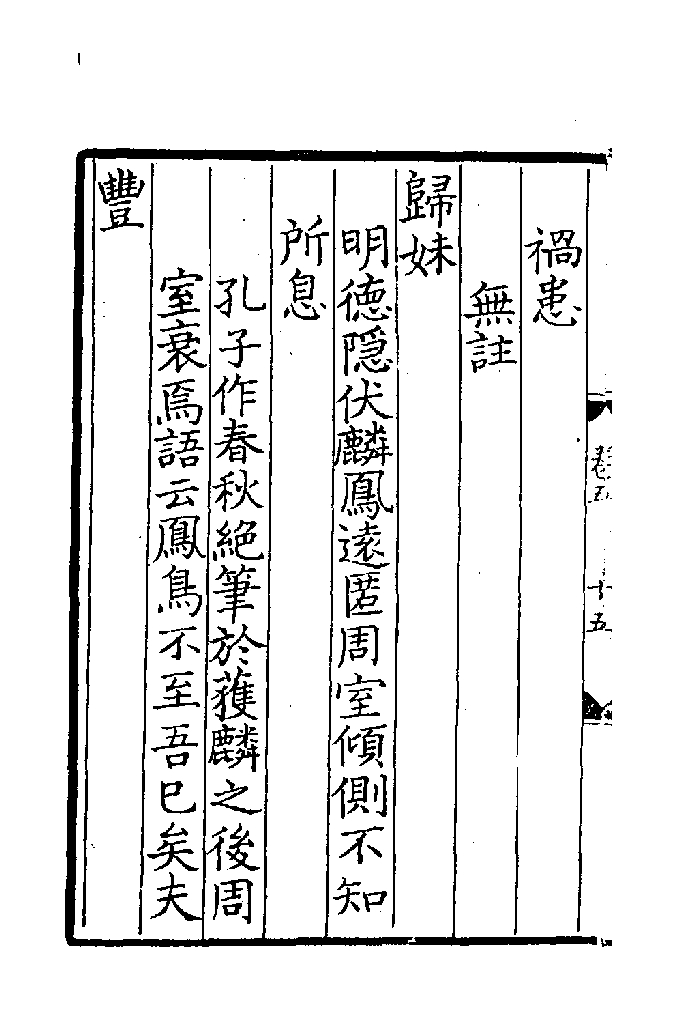 禍患
無註
歸妹
明德隱伏麟鳳遠匿周室傾側不知
所息
孔子作春秋絶筆於獲麟之後周
室衰焉語云鳳鳥不至吾已矣夫
豐
卷五
十五